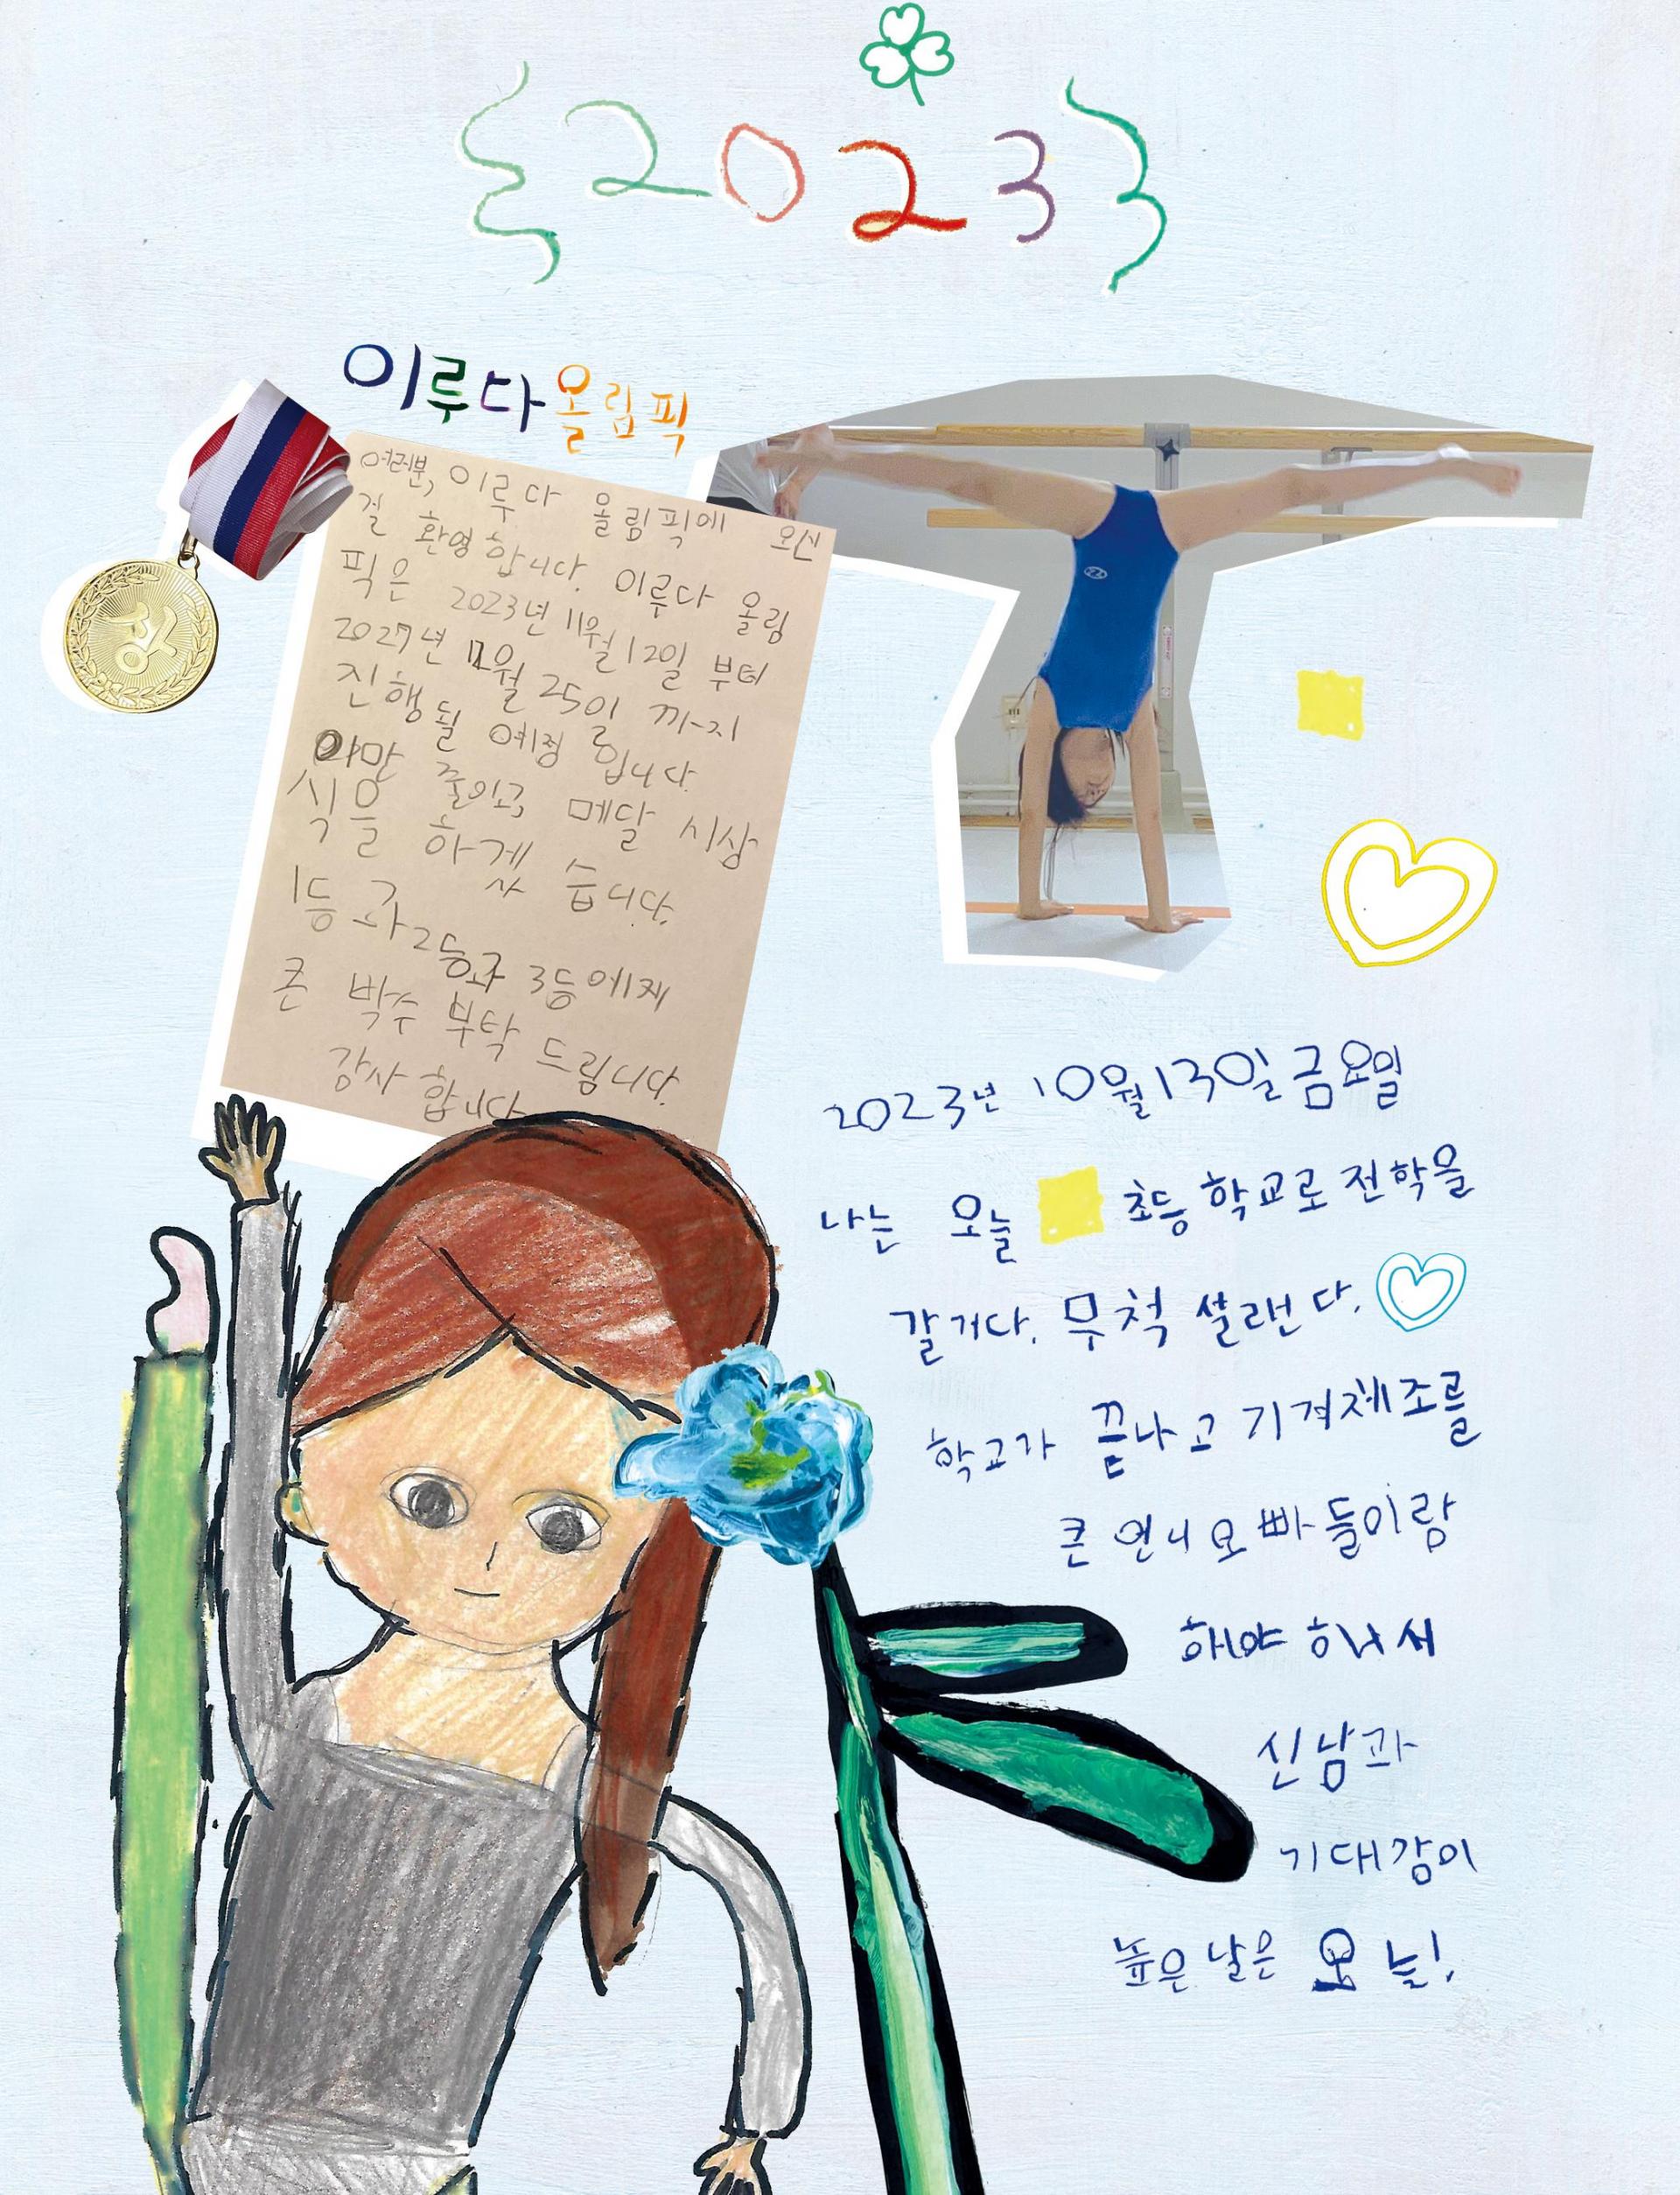 {2023}
이루다올림픽
여러분, 이루다 올림픽에 오신
걸 환영합니다. 이루다 올림
픽은 2023년 11월 12일 부터
2027년 12월 25일 까지
진행될 예정 입니다.
이만 줄이고, 메달 시상
식을 하겠 습니다.
1등 과 2등과 3등에게
큰 박수 부탁 드립니다.
감사 합니다
2023년 10월 13일 금요일
나는 오늘 초등학교로 전학을
갈거다. 무척 설랜다.
학교가 끝나고 기계체조를
큰 언니 오빠들이랑
해야 해서
신남과
기대감이
높은 날은 오늘!